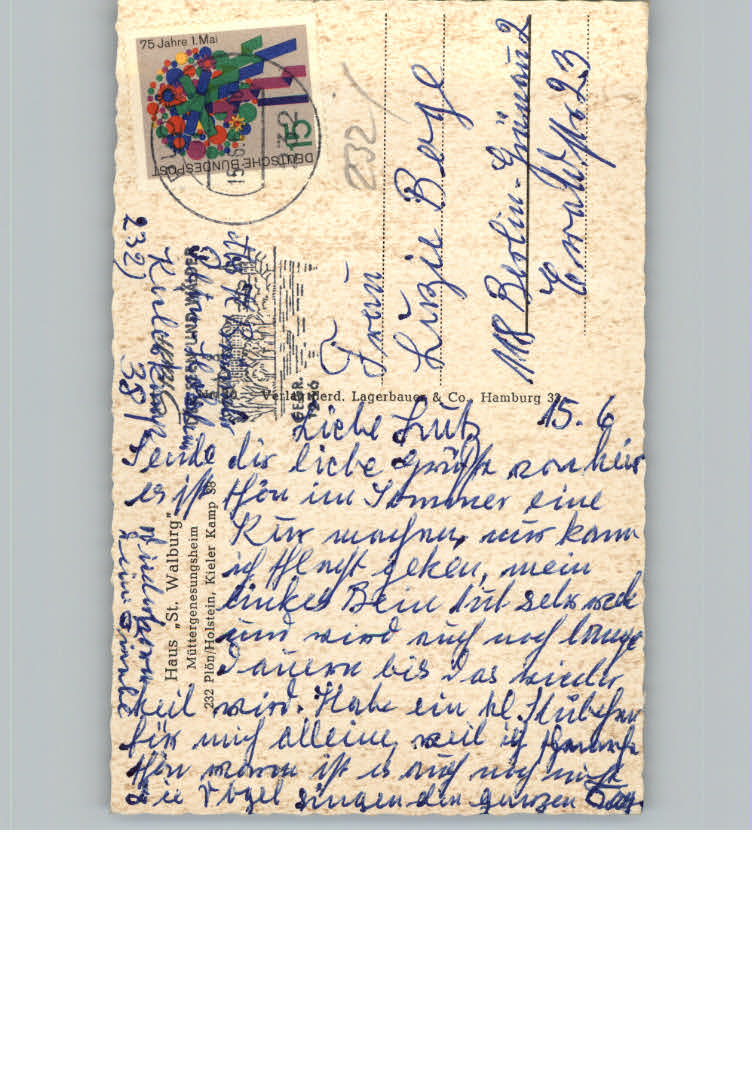 75 Jahre 1. Mai
15
DEUTSCHE BUNDESPOST
232
Frau
Luzie Berge
118 Berlin-Grünau 2
Ewaldstr 23
GEGR.
1236
Verlag Ferd. Lagerbauer & Co., Hamburg 33
Haus „St. Walburg"
Müttergenesungsheim
232 Plön/Holstein, Kieler Kamp 38
232)
38
15. 6
Liebe
Sende dir liebe Grüße von hier
es ist schön im Sommer eine
Kur machen, nur kann
ich schlecht gehen, mein
linkes Bein tut sehr weh
und wird auch noch lange
dauern bis das wieder
heil wird. Habe ein kl. Stübchen
für mich alleine, weil ich schnarche
schön warm ist es auch noch nicht
die Vögel singen den ganzen Tag